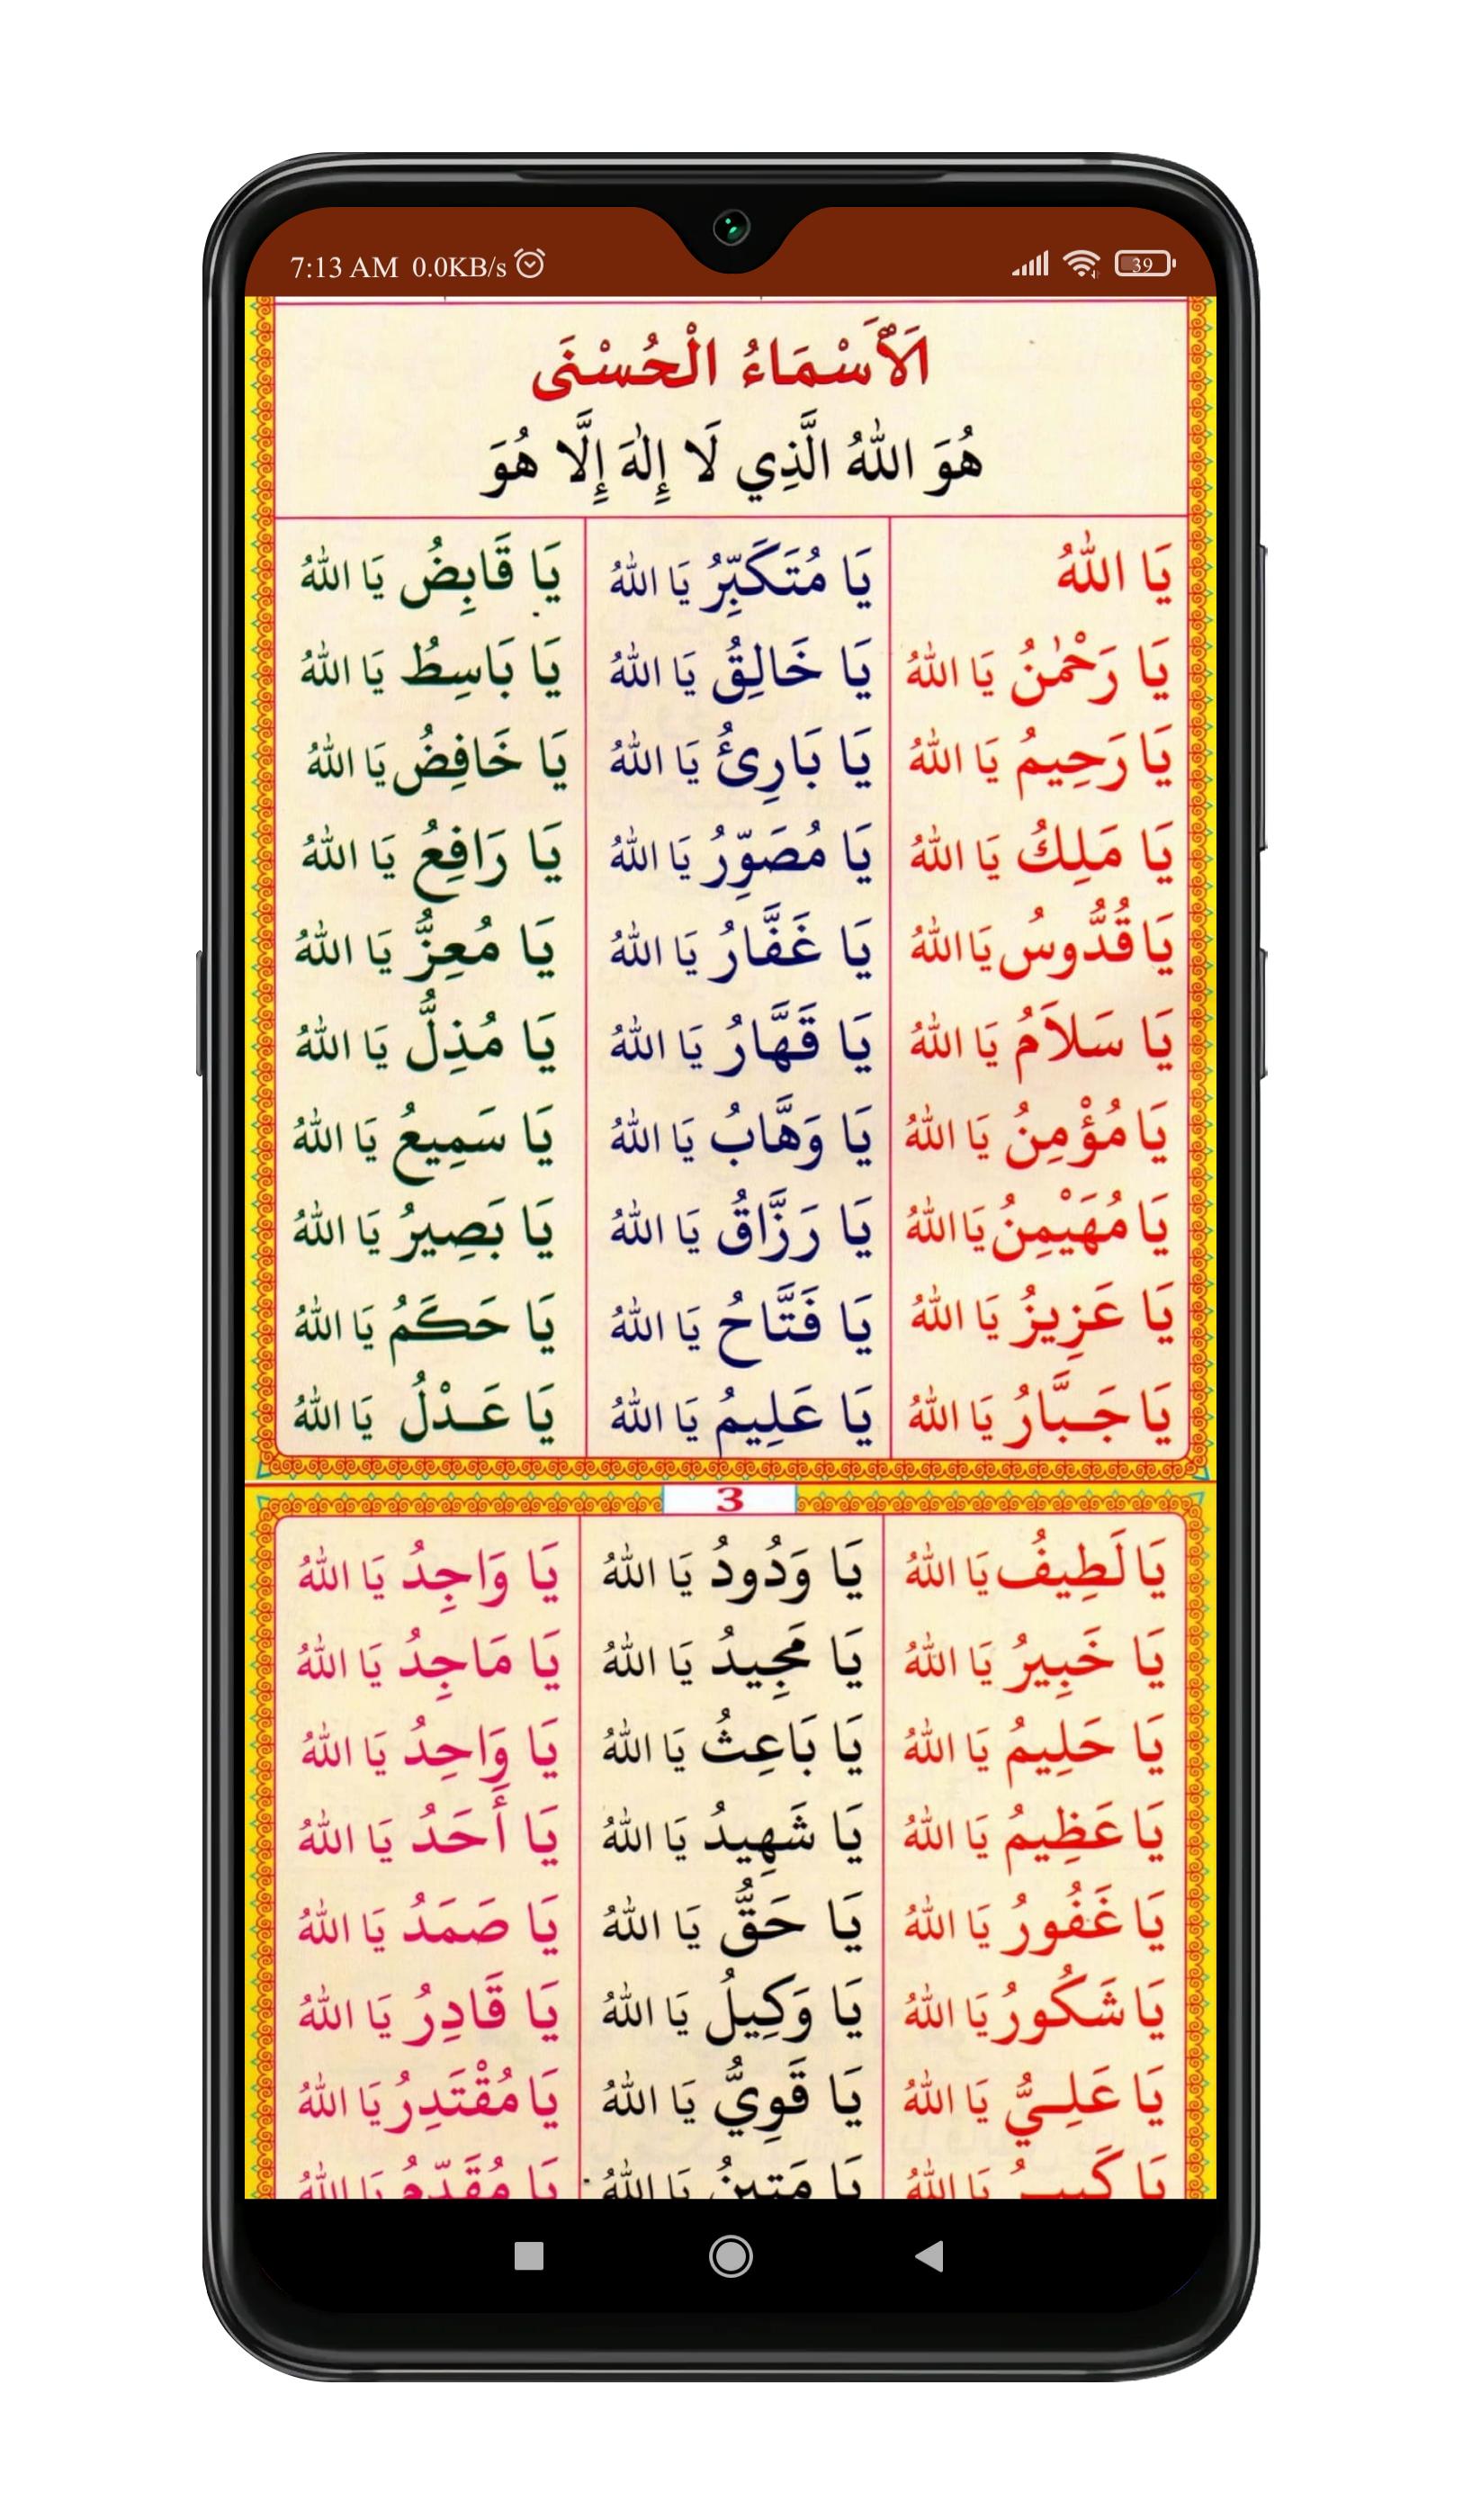 7:13 AM 0.0KB/s
39
اَلْأَسْمَاءُ الْحُسْنَى
هُوَ اللهُ الَّذِي لَا إِلٰهَ إِلَّا هُوَ
يَا اللهُ
يَا رَحْمٰنُ يَا اللهُ
يَا رَحِيمُ يَا اللهُ
يَا مَلِكُ يَا اللهُ
يَا قُدُّوسُ يَا اللهُ
يَا سَلاَمُ يَا اللهُ
يَا مُؤْمِنُ يَا اللهُ
يَا مُهَيْمِنُ يَا اللهُ
يَا عَزِيزُ يَا اللهُ
يَا جَبَّارُ يَا اللهُ
يَا مُتَكَبِّرُ يَا اللهُ
يَا خَالِقُ يَا اللهُ
يَا بَارِئُ يَا اللهُ
يَا مُصَوِّرُ يَا اللهُ
يَا غَفَّارُ يَا اللهُ
يَا قَهَّارُ يَا اللهُ
يَا وَهَّابُ يَا اللهُ
يَا رَزَّاقُ يَا اللهُ
يَا فَتَّاحُ يَا اللهُ
يَا عَلِيمُ يَا اللهُ
يَا قَابِضُ يَا اللهُ
يَا بَاسِطُ يَا اللهُ
يَا خَافِضُ يَا اللهُ
يَا رَافِعُ يَا اللهُ
يَا مُعِزُّ يَا اللهُ
يَا مُذِلُّ يَا اللهُ
يَا سَمِيعُ يَا اللهُ
يَا بَصِيرُ يَا اللهُ
يَا حَكَمُ يَا اللهُ
يَا عَدْلُ يَا اللهُ
3
يَا لَطِيفُ يَا اللهُ
يَا خَبِيرُ يَا اللهُ
يَا حَلِيمُ يَا اللهُ
يَا عَظِيمُ يَا اللهُ
يَا غَفُورُ يَا اللهُ
يَا شَكُورُ يَا اللهُ
يَا عَلِيُّ يَا اللهُ
يَا يَا اللهُ
يَا وَدُودُ يَا اللهُ
يَا مَجِيدُ يَا اللهُ
يَا بَاعِثُ يَا اللهُ
يَا شَهِيدُ يَا اللهُ
يَا حَقُّ يَا اللهُ
يَا وَكِيلُ يَا اللهُ
يَا قَوِيُّ يَا اللهُ
يَا مَتِينُ يَا اللهُ
يَا وَاجِدُ يَا اللهُ
يَا مَاجِدُ يَا اللهُ
يَا وَاحِدُ يَا اللهُ
يَا أَحَدُ يَا اللهُ
يَا صَمَدُ يَا اللهُ
يَا قَادِرُ يَا اللهُ
يَا مُقْتَدِرُ يَا اللهُ
يَا مُقَدِّمُ يَا اللهُ